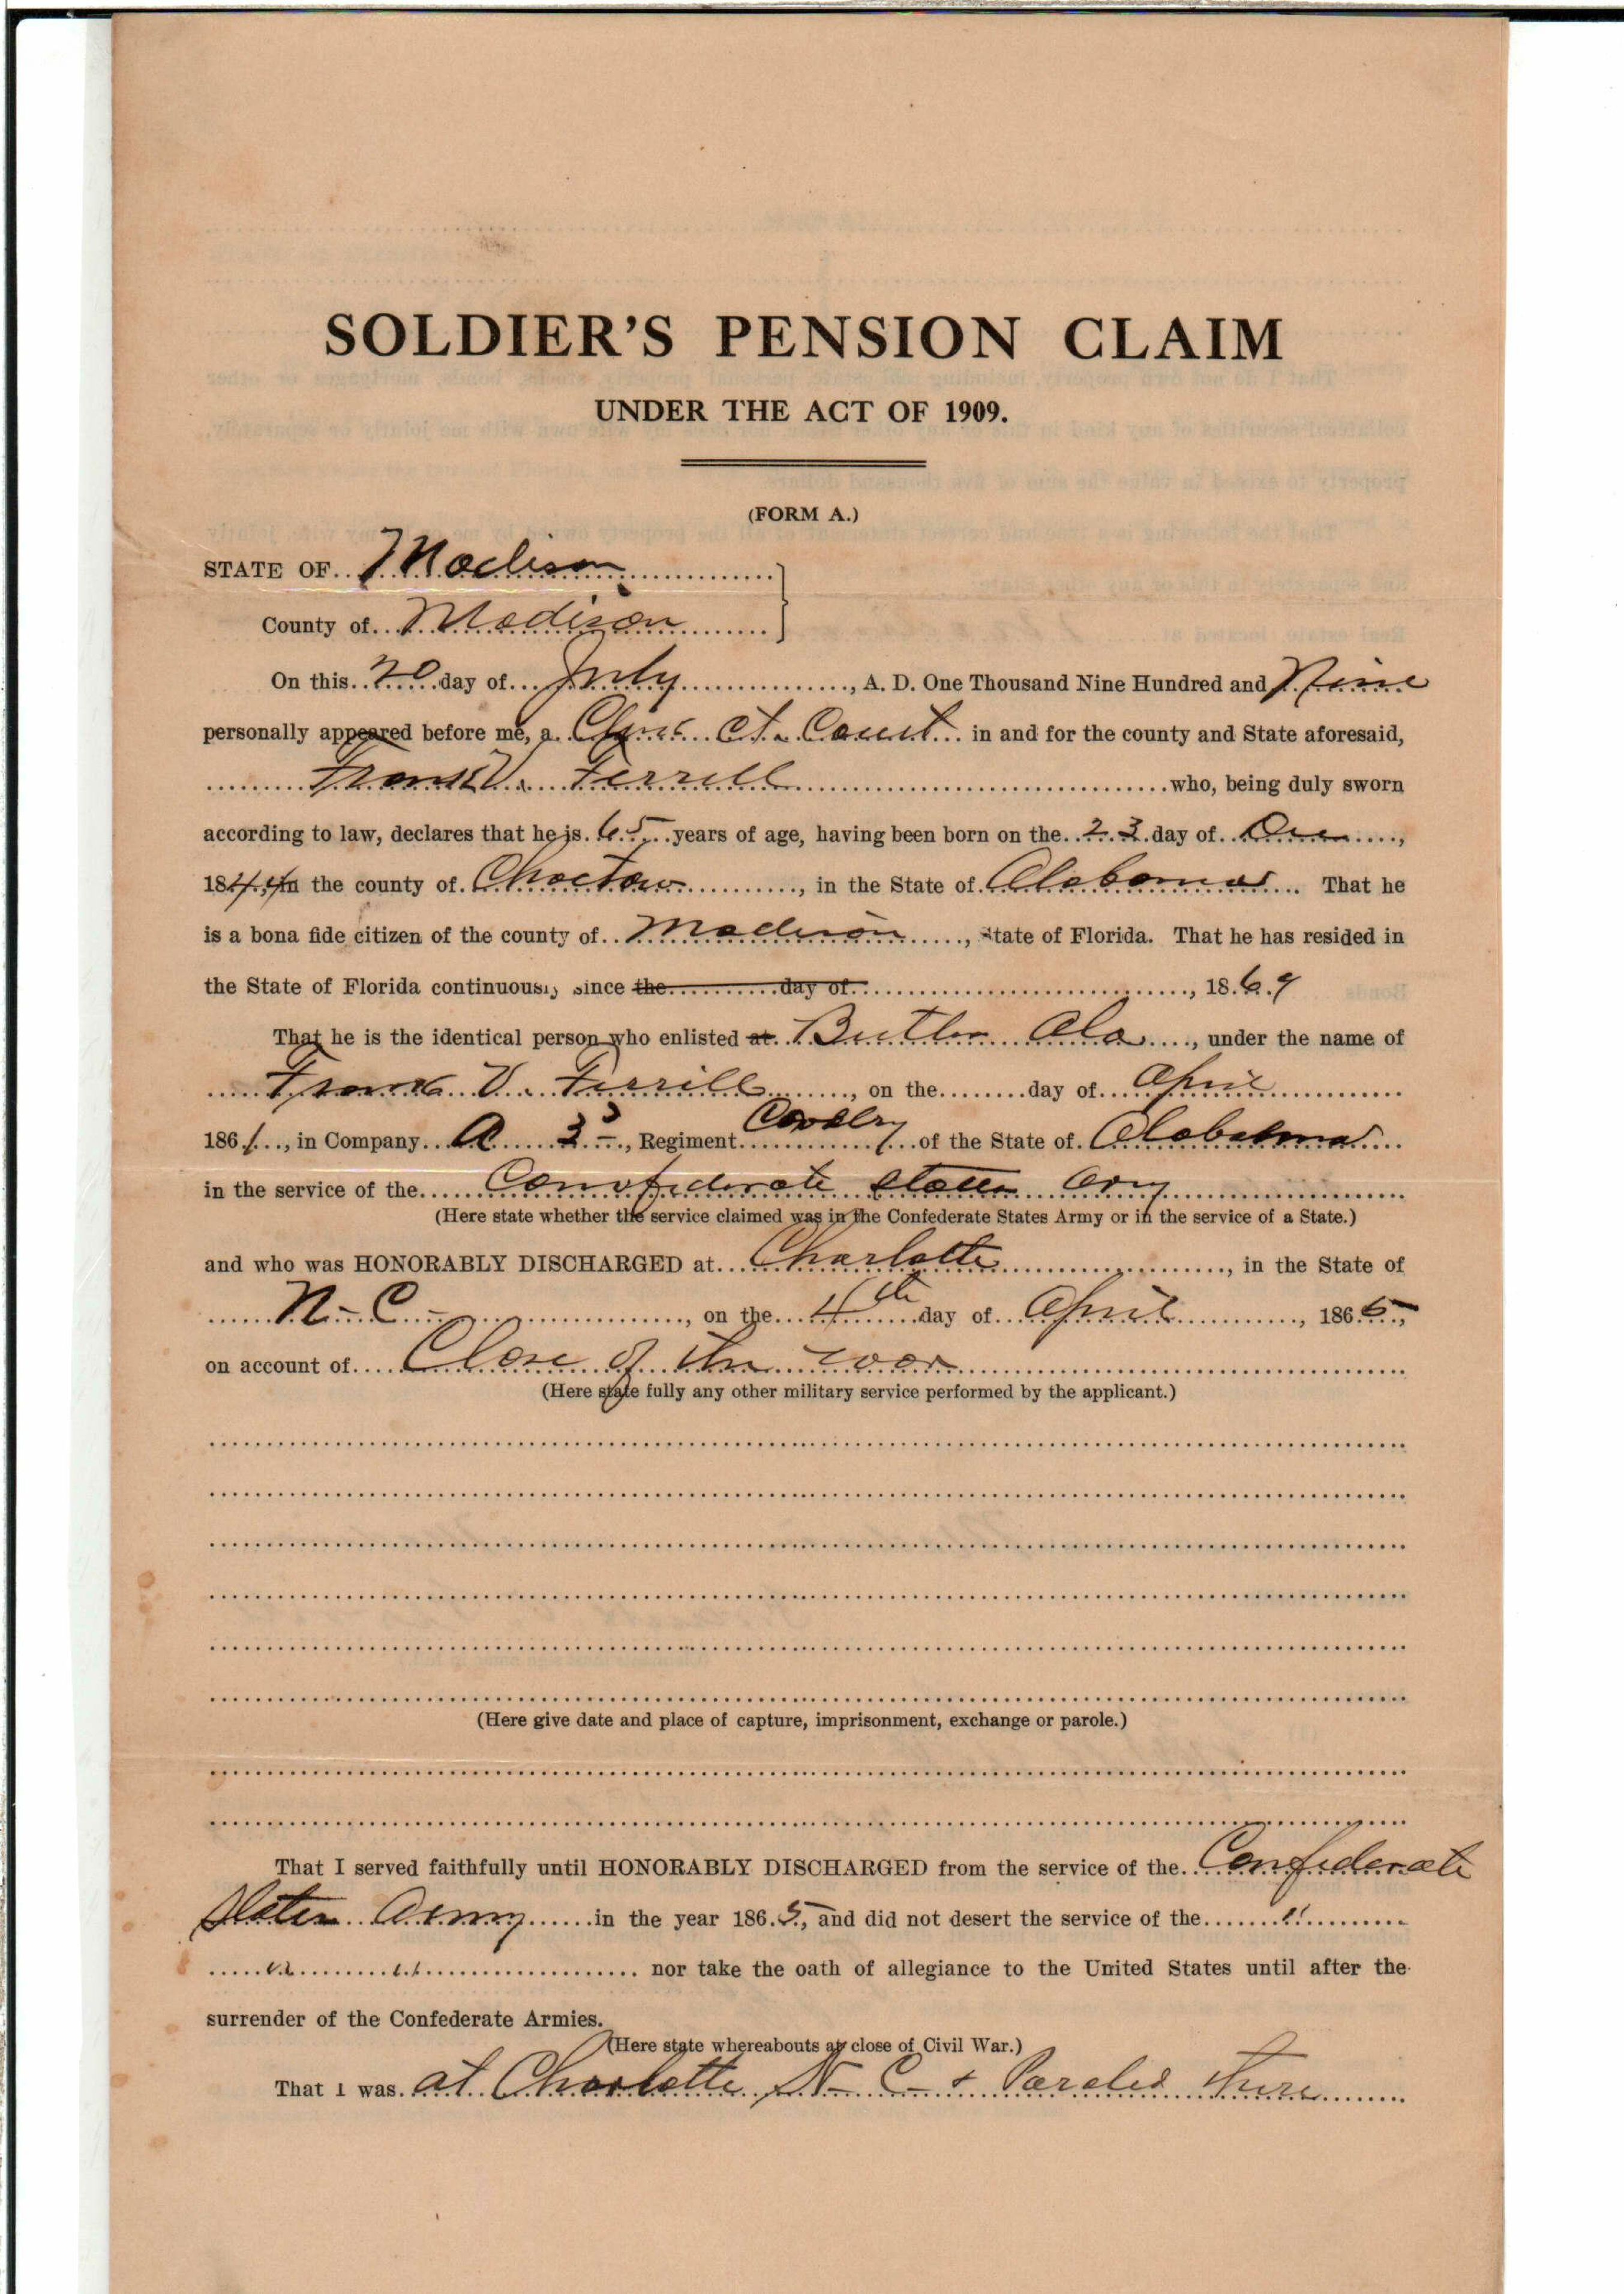 SOLDIER'S PENSION CLAIM
UNDER THE ACT OF 1909.
(FORM A.)
STATE OF Madison
County of Madison
On this 20 day of July, A. D. One Thousand Nine Hundred and Nine
personally appeared before me, a Clerk Ct. Court in and for the county and State aforesaid,
Frank V. Ferrell who, being duly sworn
according to law, declares that he is 65 years of age, having been born on the 23 day of,
1844 in the county of Choctaw, in the State of Alabama. That he
is a bona fide citizen of the county of Madison, State of Florida. That he has resided in
the State of Florida continuously since the day of, 1869
That he is the identical person who enlisted at Butler Ala, under the name of
Frank V. Ferrill, on the day of April
1861, in Company A 3, Regiment Cavalry of the State of Alabama
in the service of the Confederate States Army
(Here state whether the service claimed was in the Confederate States Army or in the service of a State.)
and who was HONORABLY DISCHARGED at Charlotte, in the State of
N. C., on the 4th day of April, 1865,
on account of Close of the war
(Here state fully any other military service performed by the applicant.)
(Here give date and place of capture, imprisonment, exchange or parole.)
That I served faithfully until HONORABLY DISCHARGED from the service of the Confederate
States Army in the year 1865, and did not desert the service of the "
" " nor take the oath of allegiance to the United States until after the
surrender of the Confederate Armies.
(Here state whereabouts at close of Civil War.)
That I was at Charlotte N- C- & Paroled there